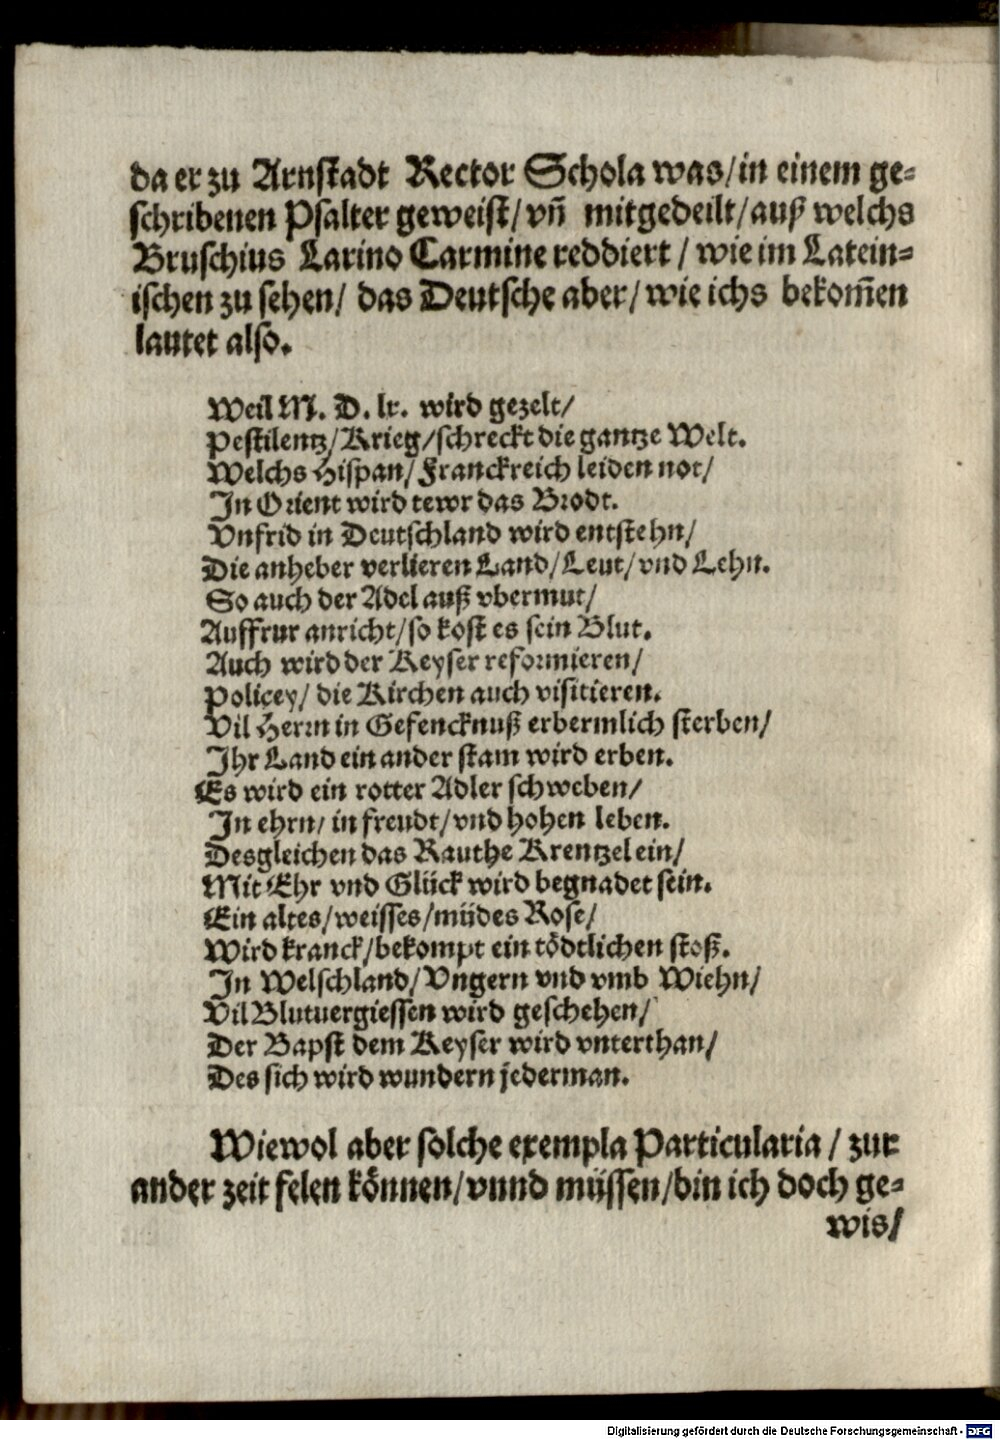 da er zu Arnstadt Rector Schola was/in einem ge=
schribenen Psalter geweist/vñ mitgedeilt/auß welchs
Bruschius Larino Carmine reddiert / wie im Latein=
ischen zu sehen/ das Deutsche aber/wie ichs bekom̃en
lautet also.
Weil M. D. lx. wird gezelt/
Pestilentz/Krieg/schreckt die gantze Welt.
Welchs Hispan/Franckreich leiden not/
In Orient wird tewr das Brodt.
Vnfrid in Deutschland wird entstehn/
Die anheber verlieren Land/Leut/vnd Lehn.
So auch der Adel auß vbermut/
Auffrur anricht/so kost es sein Blut.
Auch wird der Keyser reformieren/
Policey/ die Kirchen auch visitieren.
Vil Herrn in Gefencknuß erbermlich sterben/
Ihr Land ein ander stam wird erben.
Es wird ein rotter Adler schweben/
In ehrn/ in freudt/vnd hohen leben.
Desgleichen das Rauthe Krentzelein/
Mit Ehr vnd Glück wird begnadet sein.
Ein altes/weisses/müdes Rose/
Wird kranck/bekompt ein tödtlichen stoß.
In Welschland/Vngern vnd vmb Wiehn/
Vil Blutuergiessen wird geschehen/
Der Bapst dem Keyser wird vnterthan/
Des sich wird wundern jederman.
Wiewol aber solche exempla Particularia / zur
ander zeit felen können/vnnd müssen/bin ich doch ge=
wis/
Digitalisierung gefördert durch die Deutsche Forschungsgemeinschaft - DFG